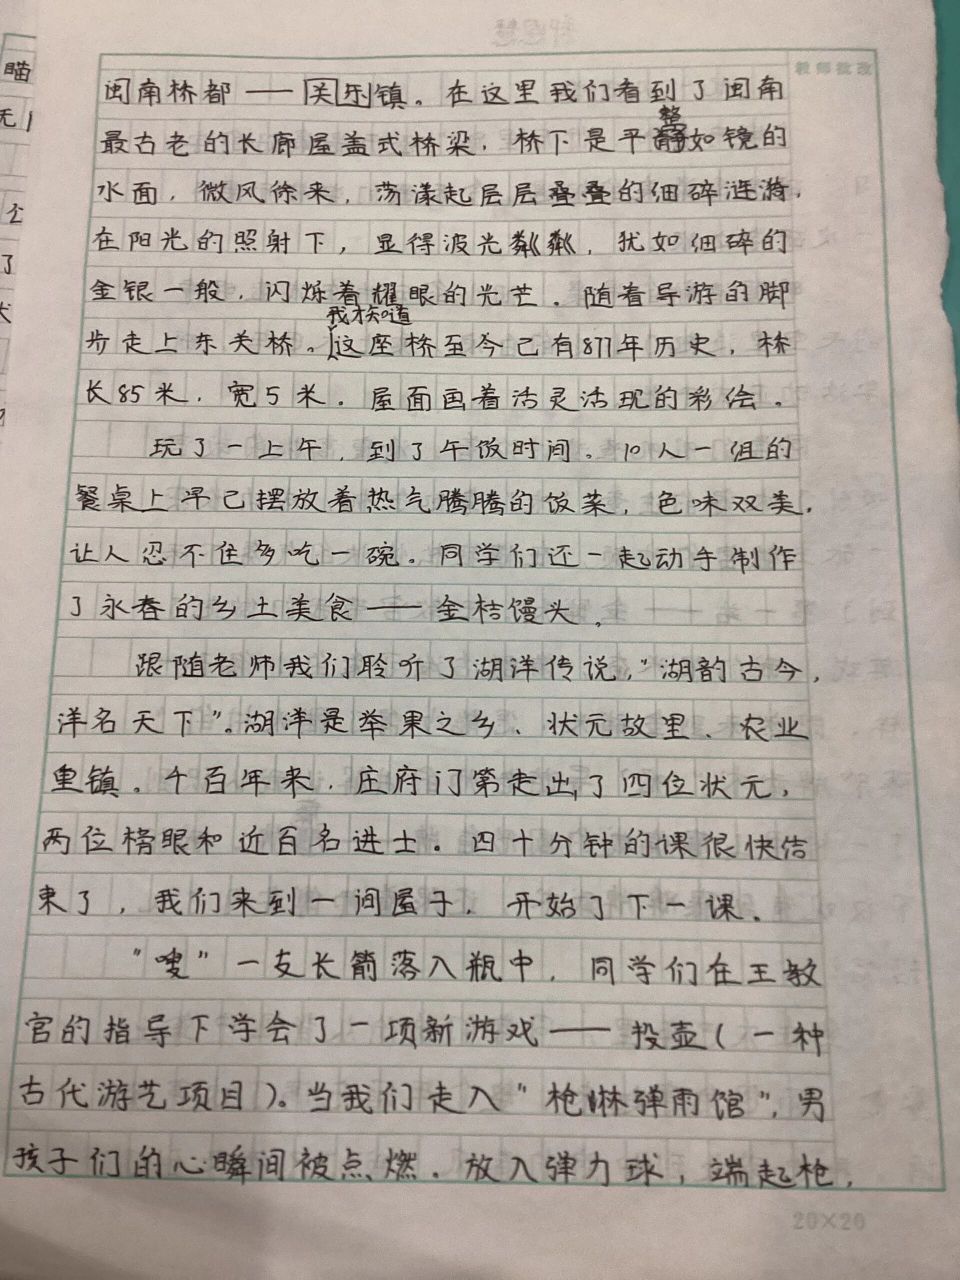 教师批改
闽南桥都——关乐镇。在这里我们看到了闽南
整
最古老的长廊屋盖式桥梁，桥下是平静如镜的
水面，微风徐来，荡漾起层层叠叠的细碎涟漪，
在阳光的照射下，显得波光粼粼，犹如细碎的
金银一般，闪烁着耀眼的光芒。随着导游的脚
我才知道
步走上东关桥。这座桥至今已有877年历史，桥
长85米，宽5米。屋面画着活灵活现的彩绘。
玩了一上午，到了午饭时间。10人一组的
餐桌上早已摆放着热气腾腾的饭菜，色味双美，
让人忍不住多吃一碗。同学们还一起动手制作
了永春的乡土美食——金桔馒头。
跟随老师我们聆听了湖洋传说，“湖韵古今，
洋名天下”。湖洋是举果之乡、状元故里、农业
重镇。千百年来，庄府门第走出了四位状元，
两位榜眼和近百名进士。四十分钟的课很快结
束了，我们来到一间屋子，开始了下一课。
“嗖”一支长箭落入瓶中，同学们在王教
官的指导下学会了一项新游戏——投壶（一种
古代游艺项目）。当我们走入“枪淋弹雨馆”，男
孩子们的心瞬间被点燃。放入弹力球，端起枪，
20×20
瞄
无
了